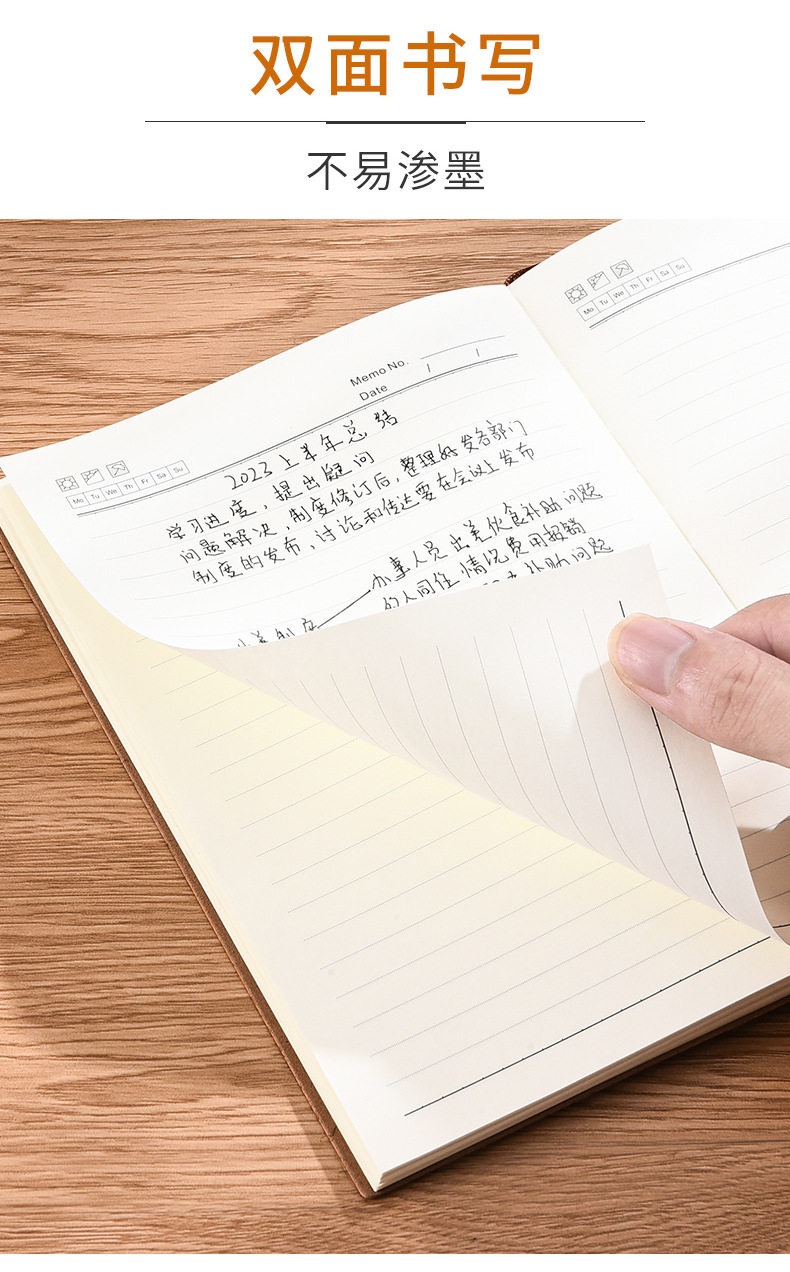 双面书写
不易渗墨
Mo Tu We Th Fr Sa Su
Memo No.
Date / /
Mo Tu We Th Fr Sa Su
2023上半年总结
学习进度，提出疑问
问题解决，制度修订后，整理好发各部门
制度的发布、讨论和传达要在会议上发布
办事人员出差伙食补助问题
的人同住情况费用报销
补助问题